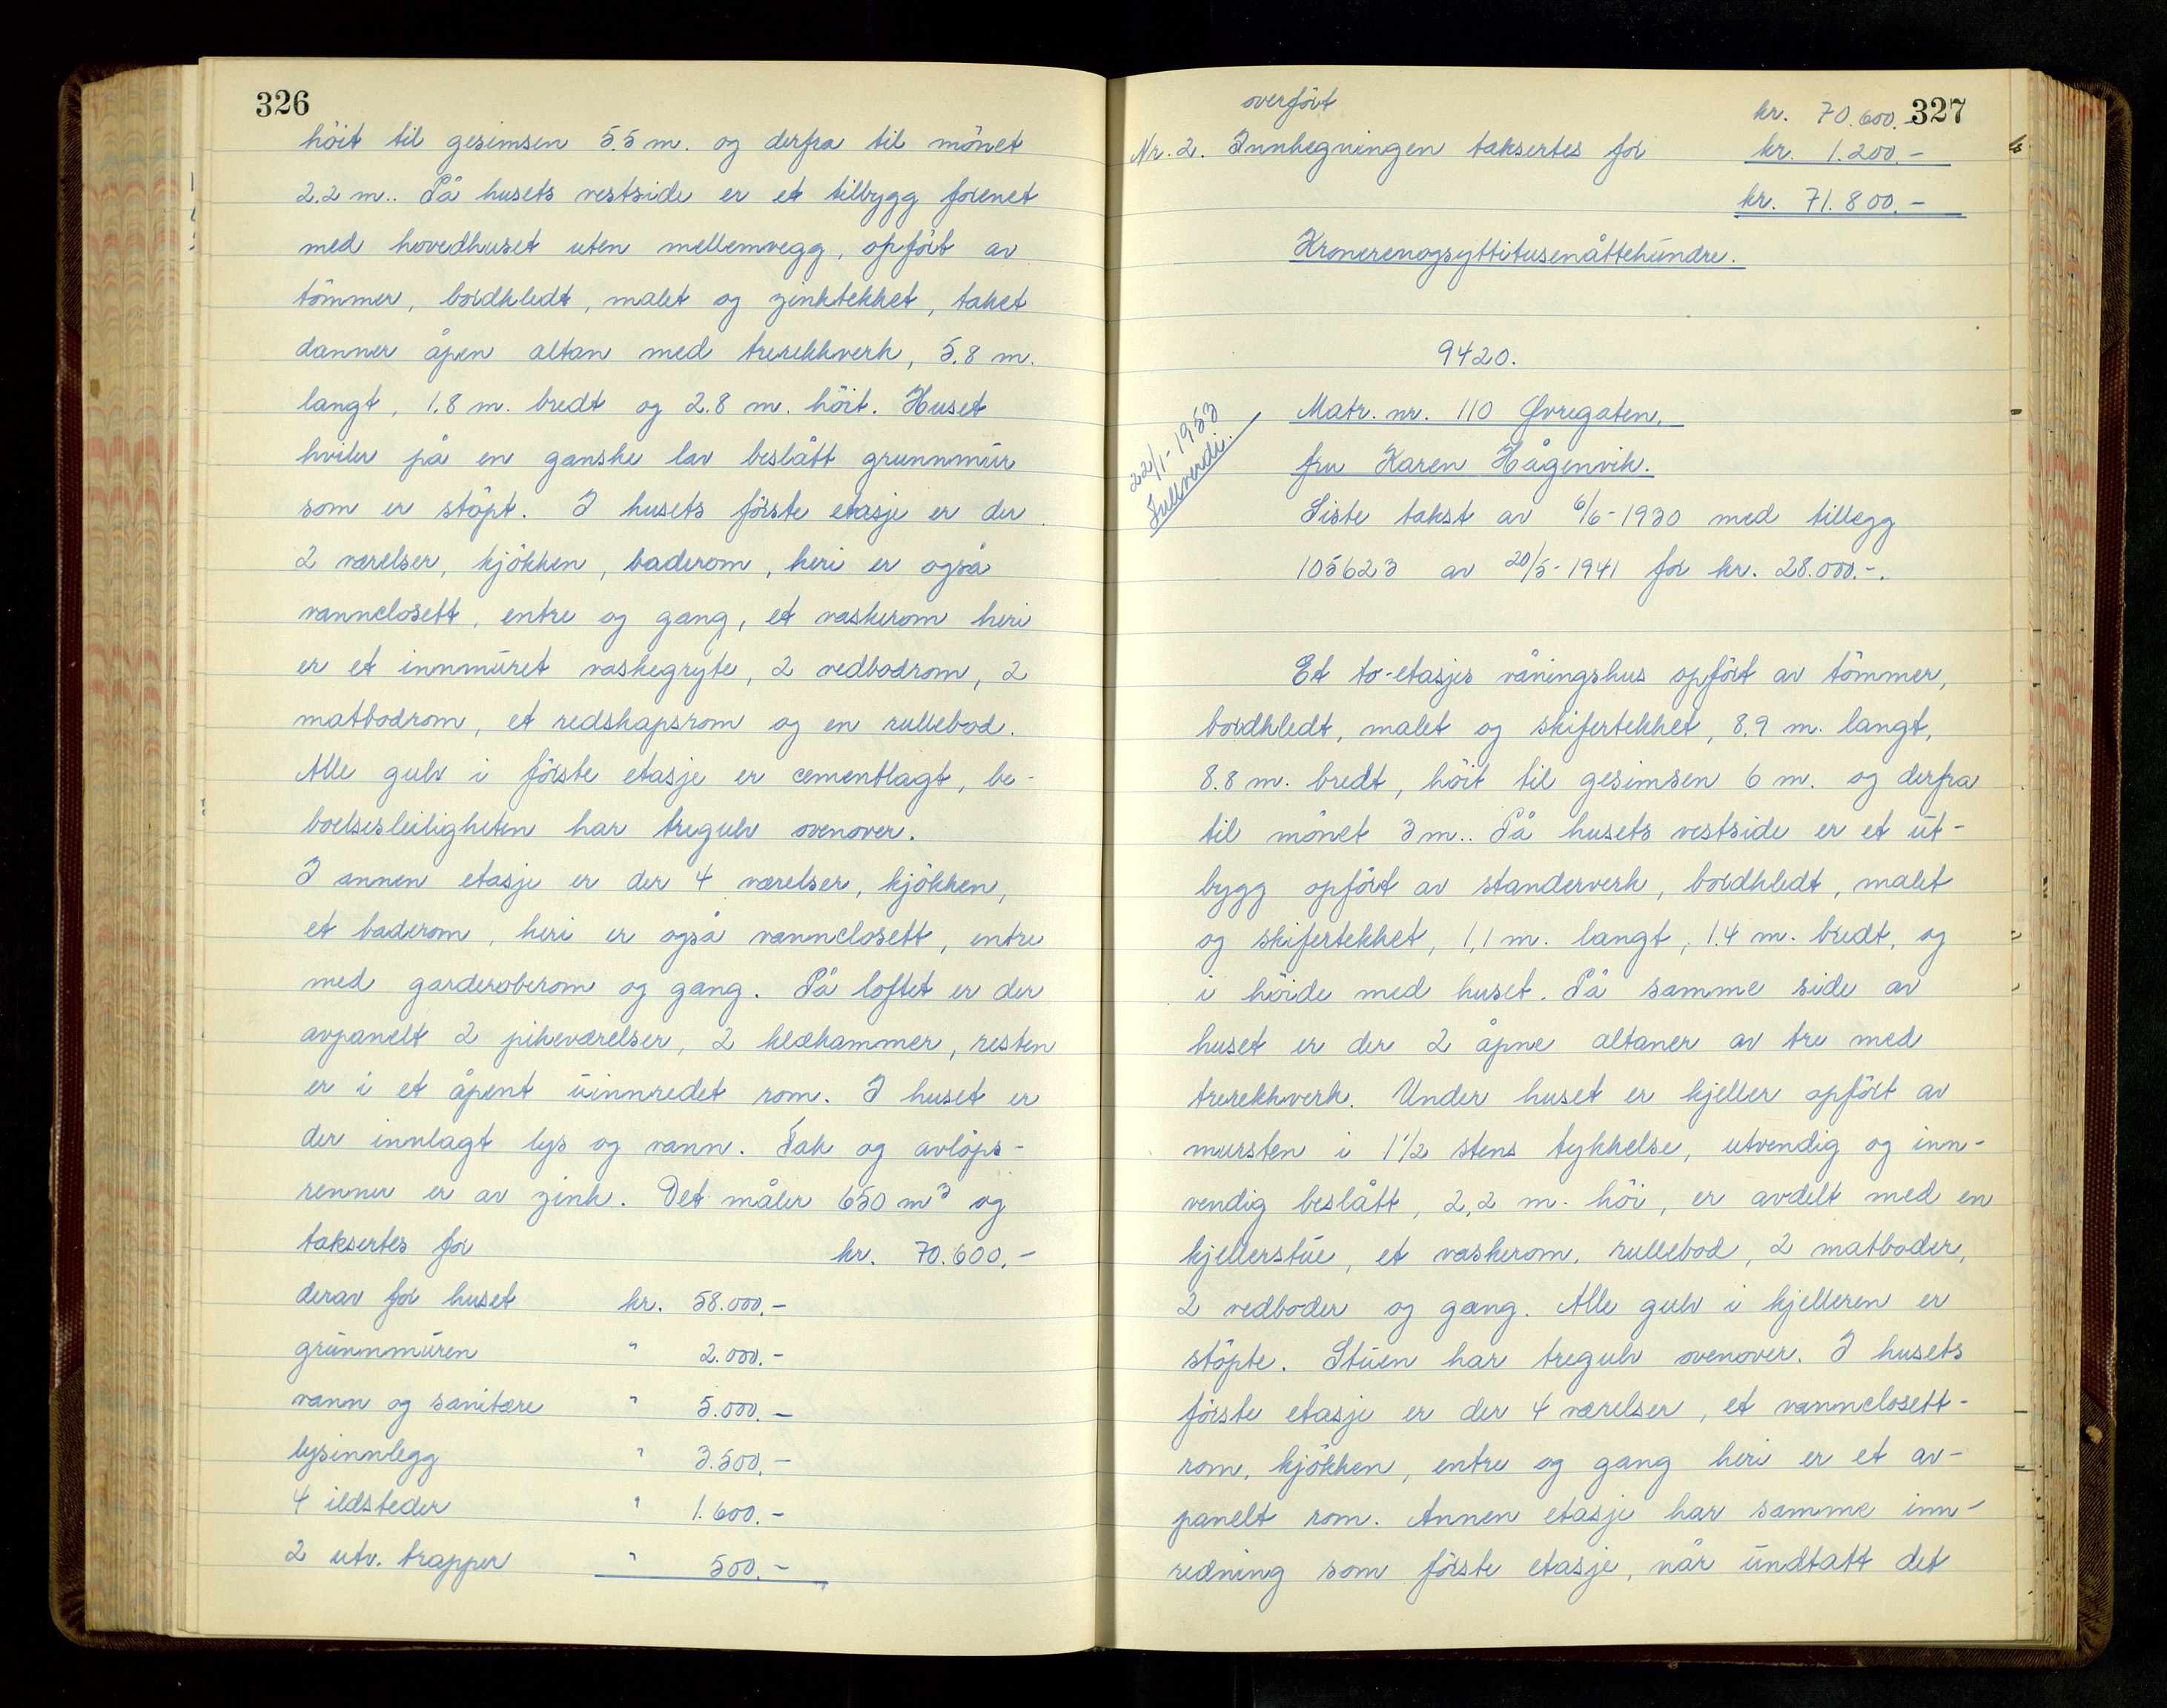 326
höit til gesimsen 5.5 m. og derfra til mönet
2.2 m.. På husets vestside er et tilbygg forenet
med hovedhuset uten mellemvegg, opfört av
tömmer, bordkledt, malet og zinktekket, taket
danner åpen altan med trerekkverk, 5.8 m.
langt, 1.8 m. bredt og 2.8 m. höit. Huset
hviler på en ganske lav beslått grunnmur
som er stöpt. I husets förste etasje er der
2 værelser, kjökken, baderom, heri er også
vannclosett, entre og gang, et vaskerom heri
er et innmuret vaskegryte, 2 vedbodrom, 2
matbodrom, et redskapsrom og en rullebod.
Alle gulv i förste etasje er cementlagt, be-
boelsesleiligheten har tregulv ovenover.
I annen etasje er der 4 værelser, kjökken,
et baderom, heri er også vannclosett, entre
med garderoberom og gang. På loftet er der
avpanelt 2 pikeværelser, 2 klækammer, resten
er i et åpent uinnredet rom. I huset er
der innlagt lys og vann. Tak og avlöps-
renner er av zink. Det måler 650 m³ og
taksertes for kr. 70.600.-
derav for huset kr. 58.000.-
grunnmuren " 2.000.-
vann og sanitære " 5.000.-
lysinnlegg " 3.500.-
4 ildsteder " 1.600.-
2 utv. trapper " 500.-
327
overfört kr. 70.600.-
Nr. 2. Innhegningen taksertes for kr. 1.200.-
kr. 71.800.-
Kronerenogsyttitusenåttehundre.
9420.
22/1-1953
Fullverdi.
Matr. nr. 110 Øvregaten,
fru Karen Hågenvik.
Siste takst av 6/6-1930 med tillegg
105623 av 20/5-1941 for kr. 28.000.-.
Et to-etasjes våningshus opfört av tömmer,
bordkledt, malet og skifertekket, 8.9 m. langt,
8.8 m. bredt, höit til gesimsen 6 m. og derfra
til mönet 3 m.. På husets vestside er et ut-
bygg opfört av standerverk, bordkledt, malet
og skifertekket, 1,1 m. langt, 1.4 m. bredt, og
i höide med huset. På samme side av
huset er der 2 åpne altaner av tre med
trerekkverk. Under huset er kjeller opfört av
mursten i 1½ stens tykkelse, utvendig og inn-
vendig beslått, 2,2 m. höi, er avdelt med en
kjellerstue, et vaskerom, rullebod, 2 matboder,
2 vedboder og gang. Alle gulv i kjelleren er
stöpte. Stuen har tregulv ovenover. I husets
förste etasje er der 4 værelser, et vannclosett-
rom, kjökken, entre og gang heri er et av-
panelt rom. Annen etasje har samme inn-
redning som förste etasje, når undtatt det